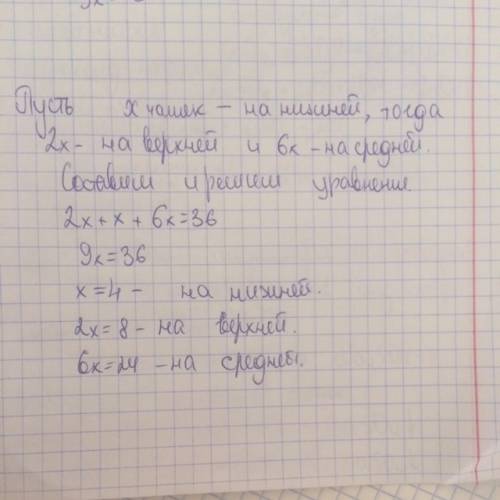 Пусть х чашек - на нижней, тогда
2х - на верхней и 6х - на средней.
Составим и решим уравнение
2х + х + 6х = 36
9х = 36
х = 4 - на нижней.
2х = 8 - на верхней.
6х = 24 - на средней.